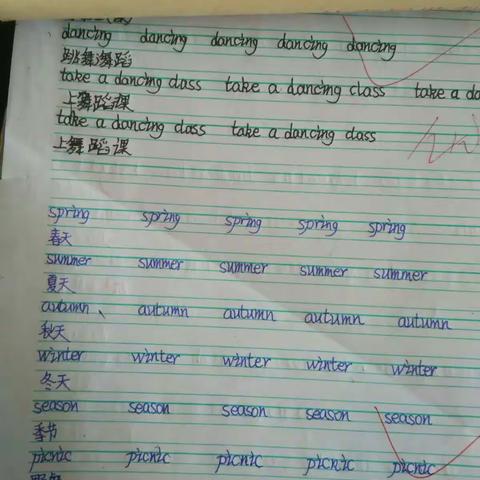 dancing dancing dancing dancing dancing
跳舞;舞蹈
take a dancing class take a dancing class take a da
上舞蹈课
take a dancing class take a dancing class
上舞蹈课
spring spring spring spring spring
春天
summer summer summer summer summer
夏天
autumn、 autumn autumn autumn autumn
秋天
winter winter winter winter winter
冬天
season season season season season
季节
picnic picnic picnic picnic picnic